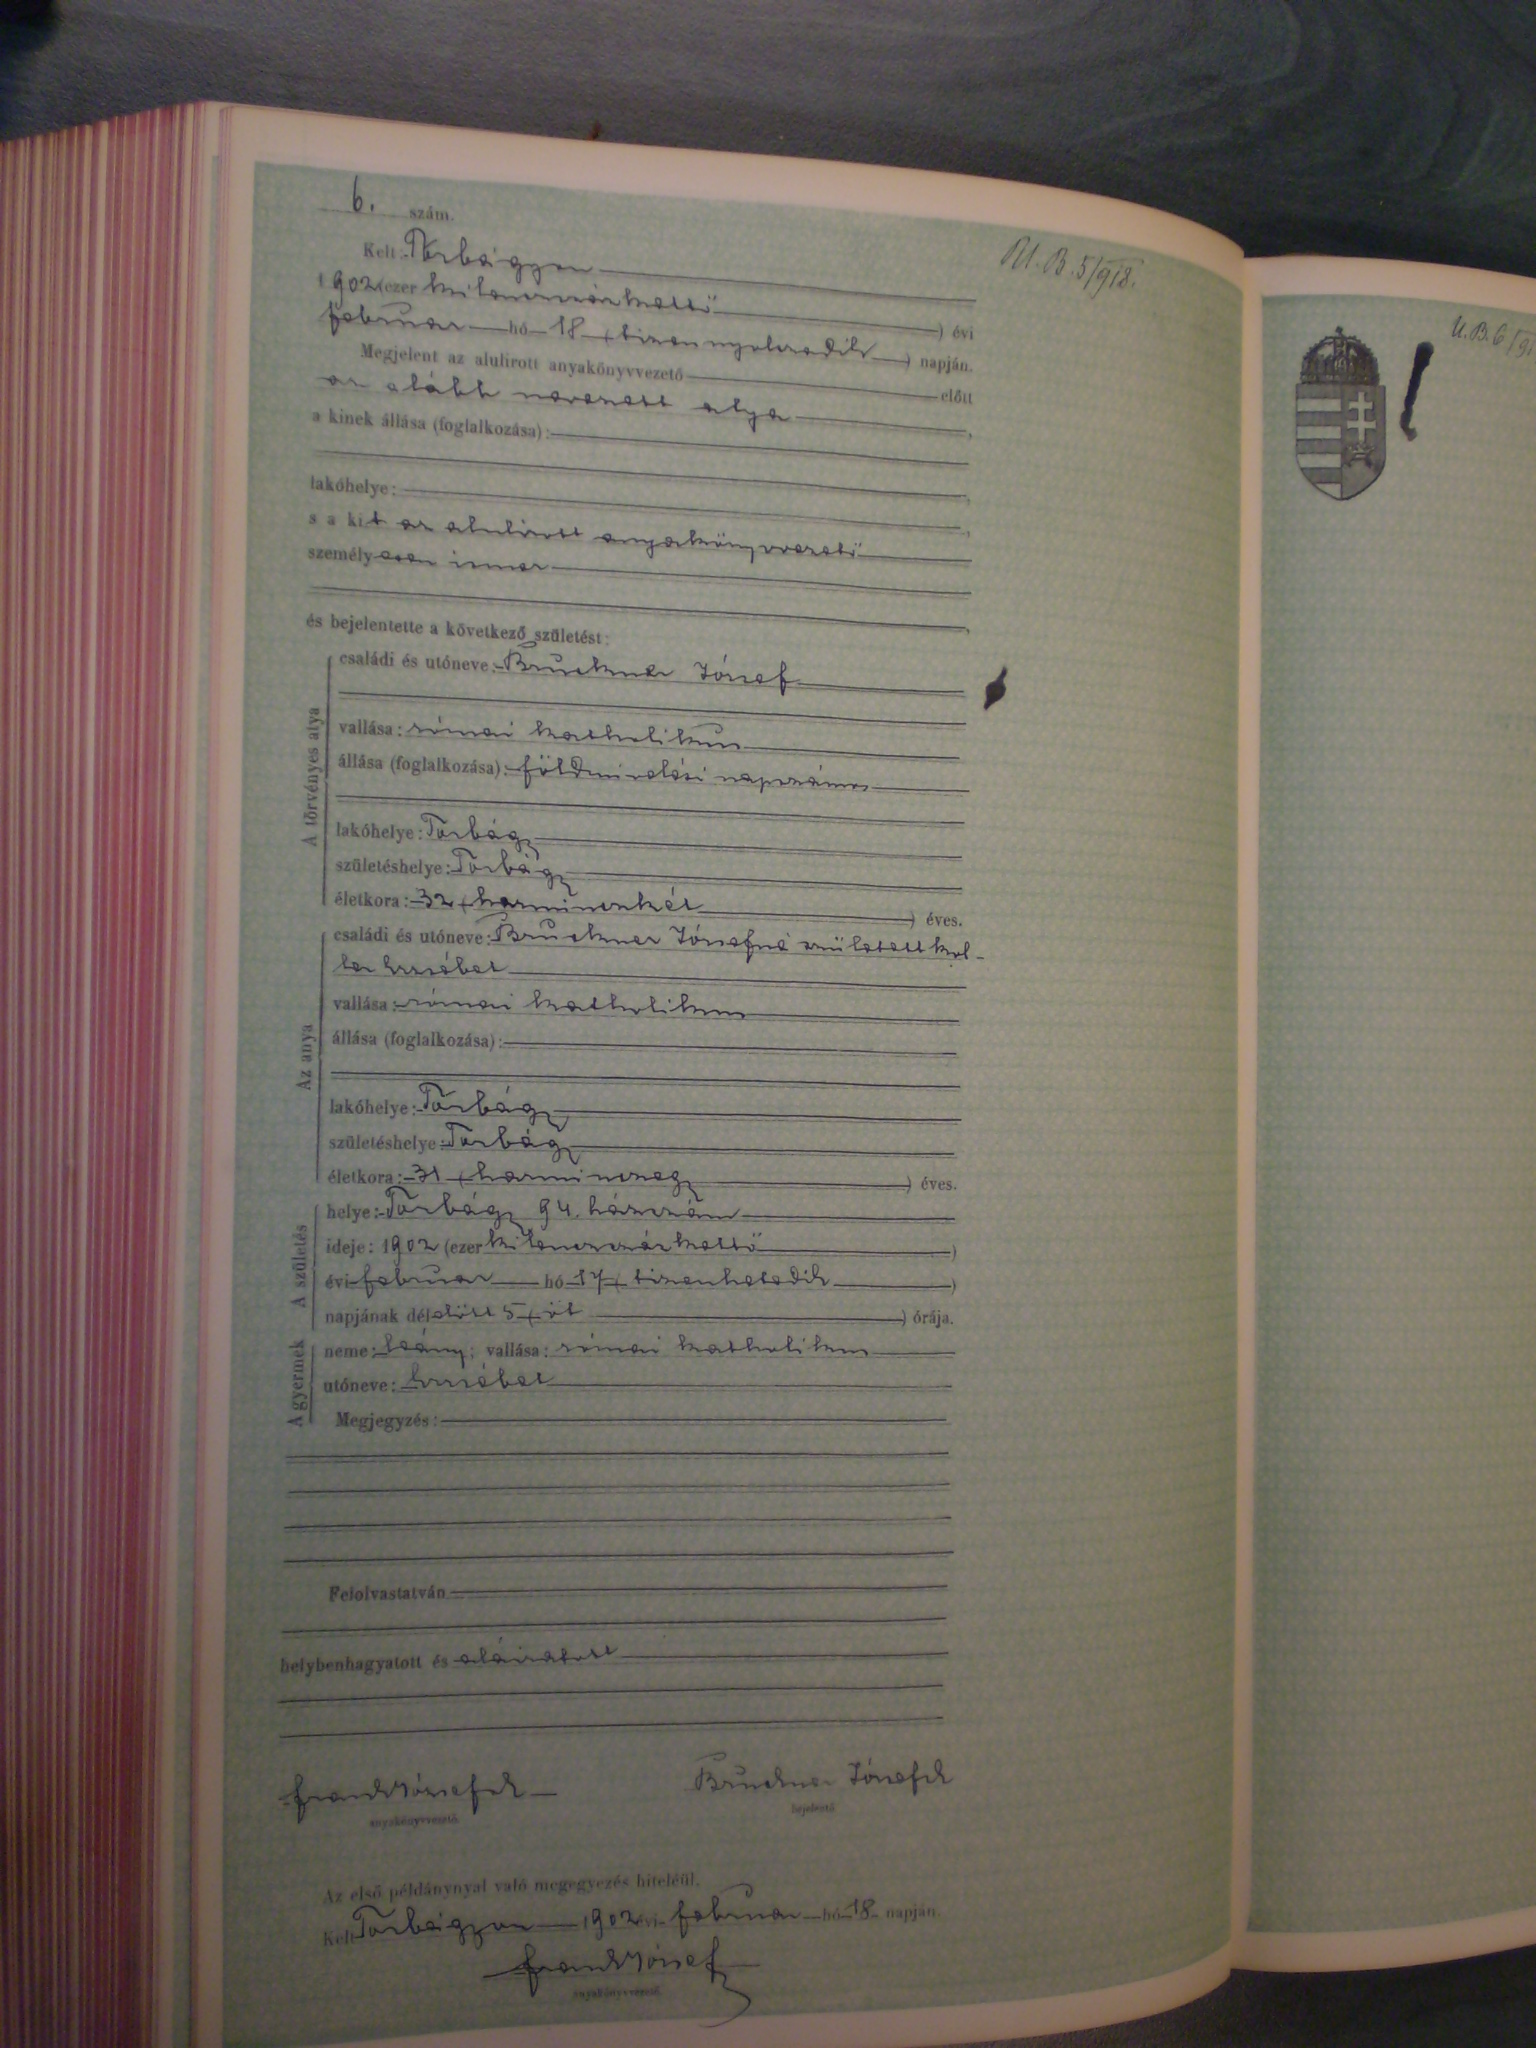 6. szám.
Kelt: Torbágyon
1902 (ezer kilenczszázkettő) évi
február hó 18 (tizennyolczadik) napján.
Megjelent az alulirott anyakönyvvezető előtt
az alább nevezett atya,
a kinek állása (foglalkozása):
lakóhelye:
s a kit az alulirott anyakönyvvezető
személyesen ismer
és bejelentette a következő születést:
A törvényes atya
családi és utóneve: Bruckner József
vallása: római katholikus
állása (foglalkozása): földmivelési napszámos
lakóhelye: Torbágy
születéshelye: Torbágy
életkora: 32 (harminczkét) éves.
Az anya
családi és utóneve: Bruckner Józsefné született Kel-
ler Erzsébet
vallása: római katholikus
állása (foglalkozása):
lakóhelye: Torbágy
születéshelye: Torbágy
életkora: 31 (harminczegy) éves.
A születés
helye: Torbágy 94. házszám
ideje: 1902 (ezer kilenczszázkettő)
évi február hó 17 (tizenhetedik)
napjának délelőtt 5 (öt) órája.
A gyermek
neme: leány; vallása: római katholikus
utóneve: Erzsébet
Megjegyzés:
Felolvastatván
helybenhagyatott és aláiratott
Frank József sk
anyakönyvvezető.
Bruckner József sk
bejelentő.
Az első példánynyal való megegyezés hiteléül.
Kelt Torbágyon 1902 évi február hó 18 napján.
Frank József
anyakönyvvezető.
U.B.5/918.
U.B.6/91